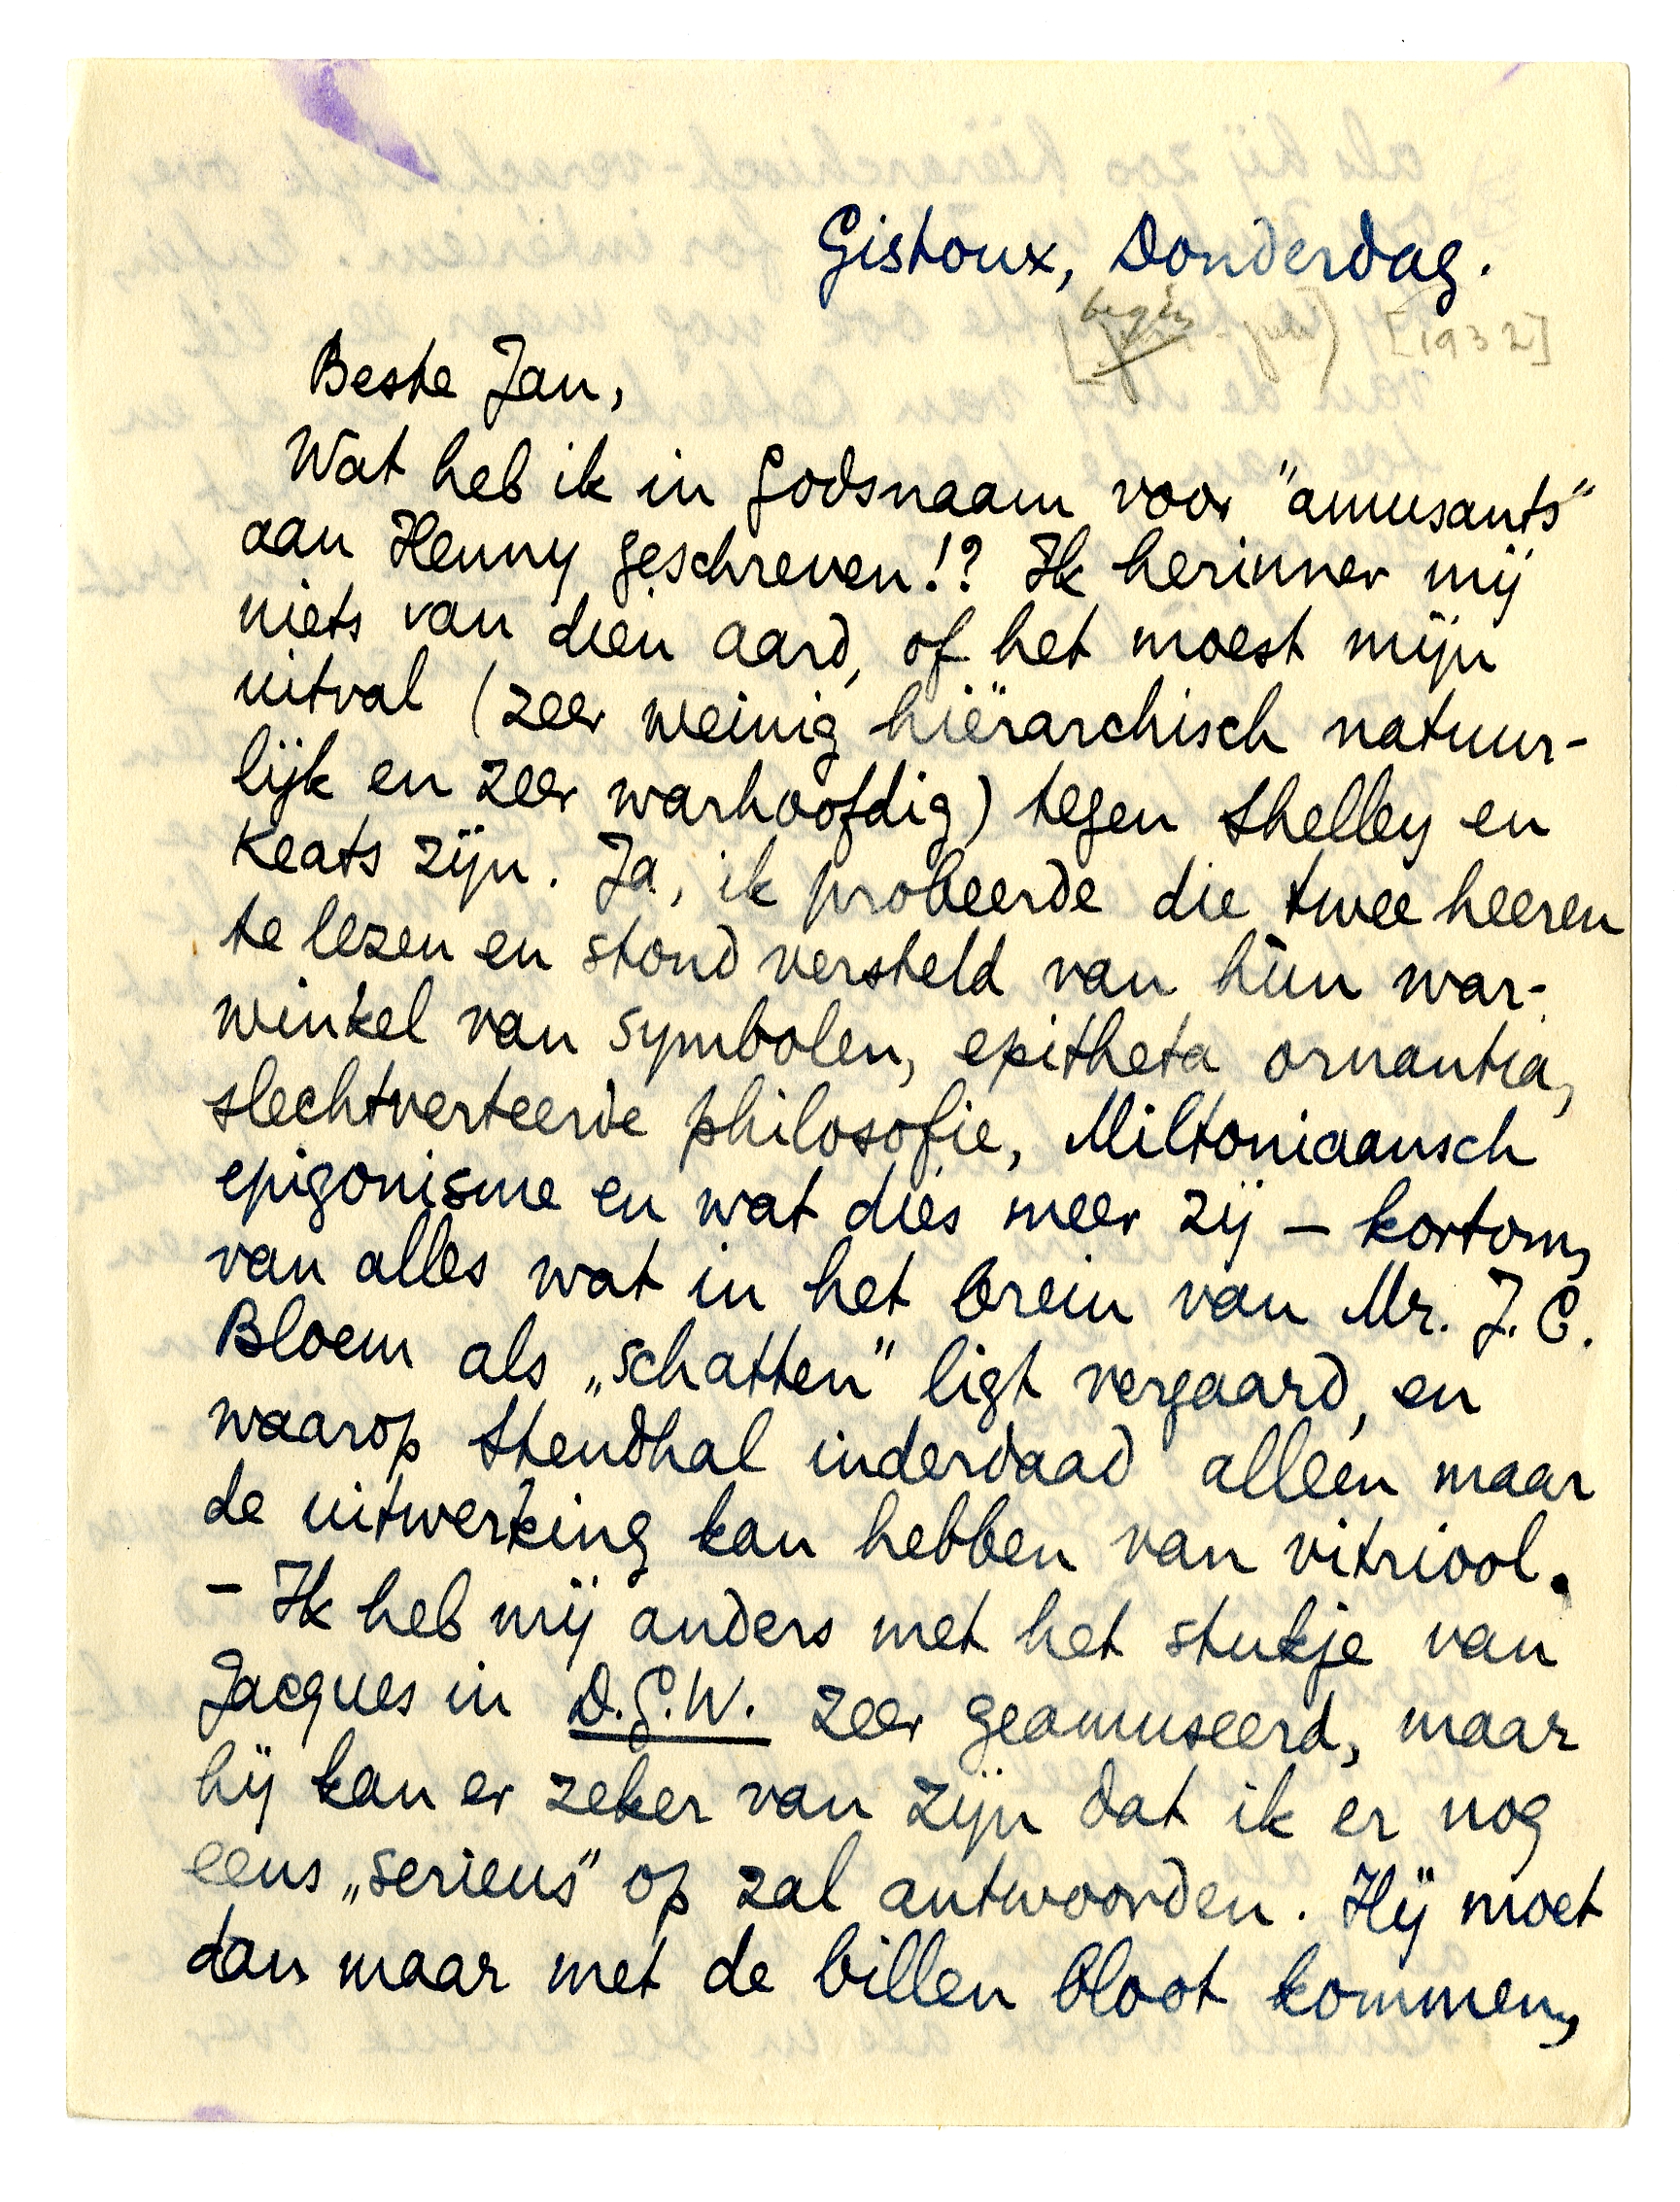 Gistoux, Donderdag.
begin
juli) [1932]
Beste Jan,
Wat heb ik in godsnaam voor "amusants"
aan Henny geschreven!? Ik herinner mij
niets van dien aard, of het moest mijn
uitval (zeer weinig hiërarchisch natuur-
lijk en zeer warhoofdig) tegen Shelley en
Keats zijn. Ja, ik probeerde die twee heeren
te lezen en stond versteld van hùn war-
winkel van symbolen, epitheta ornantia,
slechtverteerde philosofie, Miltoniaansch
epigonisme en wat dies meer zij – kortom,
van alles wat in het brein van Mr. J. C.
Bloem als „schatten" ligt vergaard, en
waarop Stendhal inderdaad alleen maar
de uitwerking kan hebben van vitriool.
– Ik heb mij anders met het stukje van
Jacques in D.G.W. zeer geamuseerd, maar
hij kan er zeker van zijn dat ik er nog
eens „serieus" op zal antwoorden. Hij moet
dan maar met de billen bloot kommen,